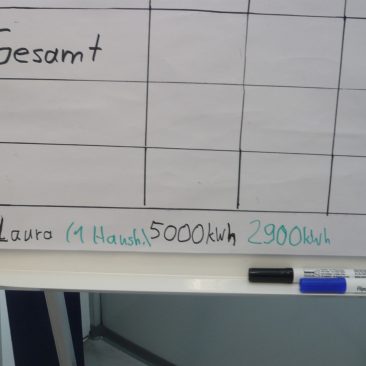 Gesamt
Laura (1 Haush.) 5000kwh 2900kwh